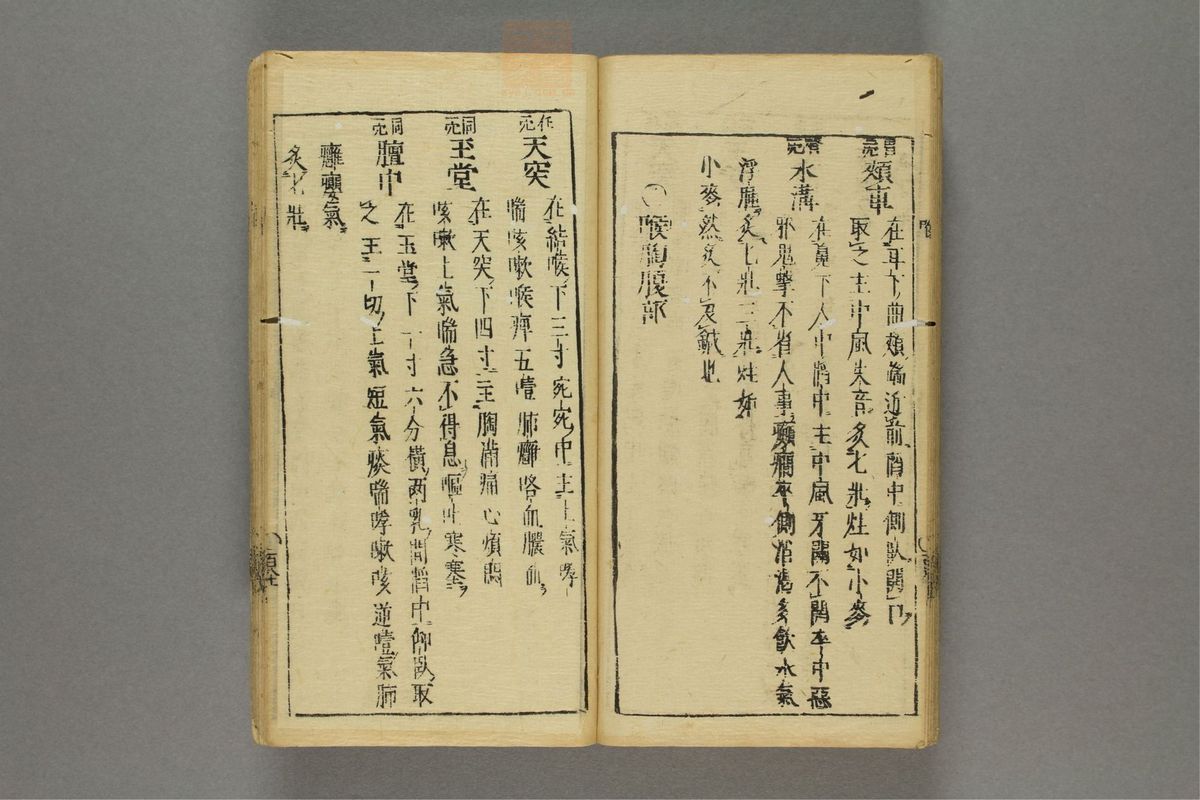 胃穴
頬車
在耳下曲頬端近前陷中側臥開口
取之主中風失音炙七壯炷如小麥
督穴
水溝
在鼻下人中陷中主中風牙關不開卒中惡
邪鬼擊不省人事癲癇卒倒消渴多飲水氣
浮腫炙七壯三壯炷如
小麥然炙不及鍼也
〇喉胸腹部
任穴
天突
在結喉下三寸宛宛中主上氣哮
喘咳嗽喉痺五噎肺癰咯血膿血
同穴
玉堂
在天突下四寸主胸滿痛心煩悶
咳嗽上氣喘急不得息嘔吐寒塞
同穴
膻中
在玉堂下一寸六分橫兩乳間陷中仰臥取
之主一切上氣短氣痰喘哮嗽咳逆噎氣肺
癰癭氣
炙七壯